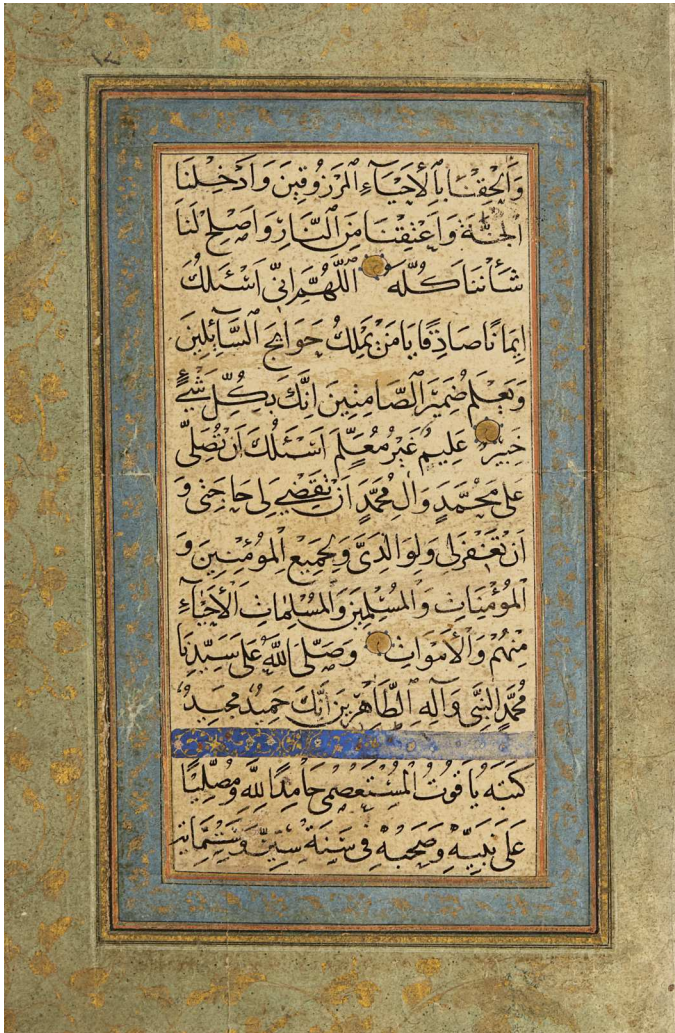 ١٧
وَاَلْحِقْنَا بِالْاَحْيَآءِ الْمَرْزُوقِينَ وَاَدْخِلْنَا
الْجَنَّةَ وَاَعْتِقْنَا مِنَ النَّارِ وَاَصْلِحْ لَنَا
شَأْنَنَا كُلَّهُ اَللّٰهُمَّ اِنِّى اَسْئَلُكَ
اِيمَانًا صَادِقًا يَا مَنْ يَمْلِكُ حَوَائِجَ السَّآئِلِينَ
وَيَعْلَمُ ضَمِيرَ الصَّامِتِينَ اِنَّكَ بِكُلِّ شَىْءٍ
خَبِيرٌ عَلِيمٌ غَيْرُ مُعَلَّمٍ اَسْئَلُكَ اَنْ تُصَلِّىَ
عَلٰى مُحَمَّدٍ وَاٰلِ مُحَمَّدٍ اَنْ تَقْضِىَ لِى حَاجَتِى وَ
اَنْ تَغْفِرَ لِى وَلِوَالِدَىَّ وَلِجَمِيعِ الْمُؤْمِنِينَ وَ
الْمُؤْمِنَاتِ وَالْمُسْلِمِينَ وَالْمُسْلِمَاتِ الْاَحْيَآءِ
مِنْهُمْ وَالْاَمْوَاتِ وَصَلَّى اللّٰهُ عَلٰى سَيِّدِنَا
مُحَمَّدٍ النَّبِىِّ وَاٰلِهِ الطَّاهِرِينَ اِنَّكَ حَمِيدٌ مَجِيدٌ
كَتَبَهُ يَاقُوتُ الْمُسْتَعْصِمِى حَامِدًا لِلّٰهِ وَمُصَلِّيًا
عَلَى نَبِيِّهِ وَصَحْبِهِ فِى سَنَةِ سِتِّينَ وَسِتِّمِائَة